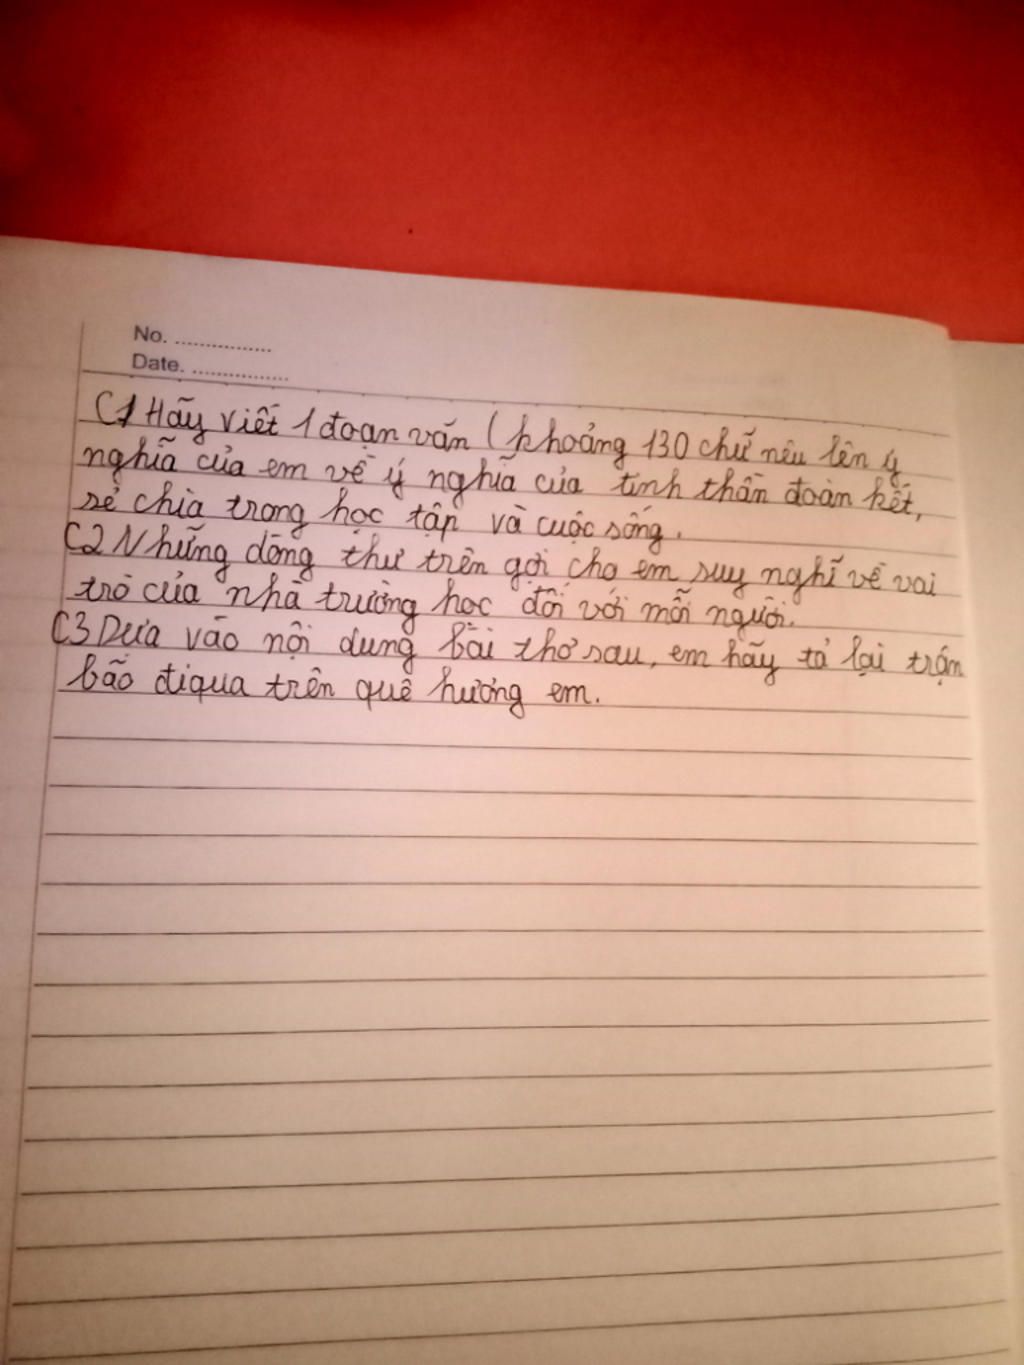 No. ................
Date. ................
C1 Hãy viết 1 đoạn văn (khoảng 130 chữ nêu lên ý
nghĩa của em về ý nghĩa của tinh thần đoàn kết,
sẻ chia trong học tập và cuộc sống.
C2 Những dòng thư trên gợi cho em suy nghĩ về vai
trò của nhà trường học đối với mỗi người.
C3 Dựa vào nội dung bài thơ sau, em hãy tả lại trận
bão đi qua trên quê hương em.